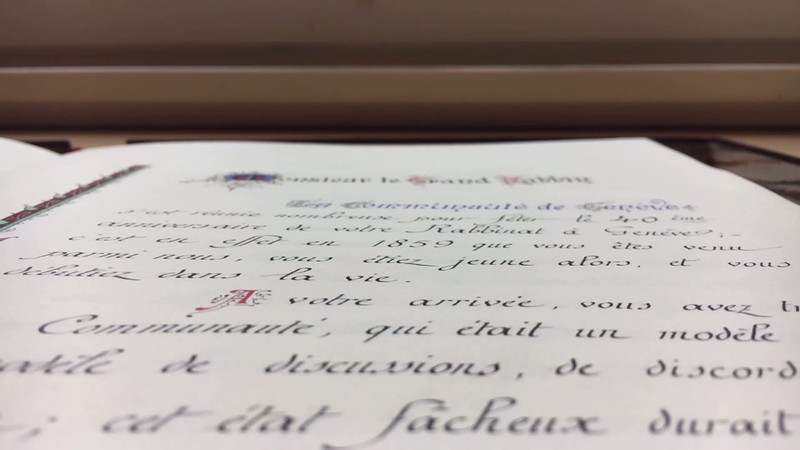 Monsieur le Grand Rabbin
La Communauté de Genève,
s'est réunie nombreuse pour fêter le 40 ème
anniversaire de votre Rabbinat à Genève;-
c'est en effet en 1859 que vous êtes venu
parmi nous, vous étiez jeune alors, et vous
débutiez dans la vie.
A votre arrivée, vous avez
Communauté, qui était un modèle
de discussions, de
; cet état fâcheux durait